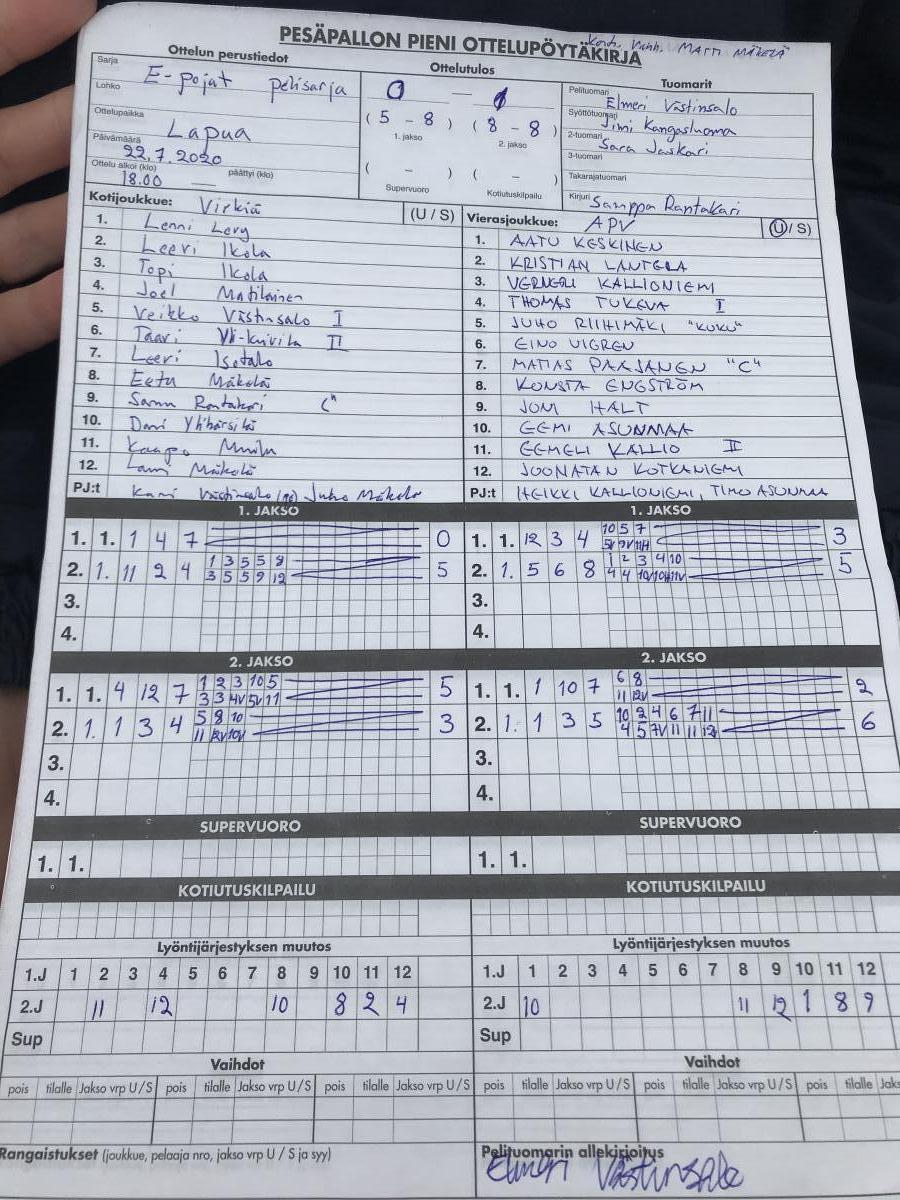 PESÄPALLON PIENI OTTELUPÖYTÄKIRJA
MATTI MÄKELÄ
Ottelun perustiedot
Sarja
E-pojat pelisarja
Lohko
Ottelupaikka
Lapua
Päivämäärä
22.7.2020
Ottelu alkoi (klo) päättyi (klo)
18.00 —
Ottelutulos
0 — 1
(5 - 8) (8 - 8)
1. jakso 2. jakso
( - ) ( - )
Supervuoro Kotiutuskilpailu
Tuomarit
Pelituomari
Elmeri Västinsalo
Syöttötuomari
Jimi Kangasluoma
2-tuomari
Sara Jaskari
3-tuomari
Takarajatuomari
Kirjuri Samppa Rantakari
Kotijoukkue: Virkiä (U / S)
1. Lenni Levy
2. Leevi Ikola
3. Topi Ikola
4. Joel Matilainen
5. Veikko Västinsalo I
6. Taavi Yli-Kuivila II
7. Leevi Isotalo
8. Eetu Mäkelä
9. Samu Rantakari "C"
10. Dani Ylihärsilä
11. Kaapo
12. Lauri Mäkelä
PJ:t Västinsalo Juho Mäkelä
Vierasjoukkue: APV (U / S)
1. AATU KESKINEN
2. KRISTIAN LANTELA
3. VERNERI KALLIONIEMI
4. THOMAS TUKEVA I
5. JUHO RIIHIMÄKI "KUKU"
6. EINO VIGREN
7. MATIAS PAAJANEN "C"
8. KONSTA ENGSTRÖM
9. JONI HALT
10. EEMI ASUNMAA
11. EEMELI KALLIO II
12. JOONATAN KOTKANIEMI
PJ:t HEIKKI KALLIONIEMI, TIMO ASUNMAA
1. JAKSO
1. 1. 1 4 7 0
2. 1. 11 2 4 1 3 5 5 8 5
3 5 5 9 12
3.
4.
1. JAKSO
1. 1. 12 3 4 10 5 7 3
5V 7V 11H
2. 1. 5 6 8 1 2 3 4 10 5
4 4 10 10H 11V
3.
4.
2. JAKSO
1. 1. 4 12 7 1 2 3 10 5 5
3 3 4V 5V 11
2. 1. 1 3 4 5 8 10 3
11 12V 10V
3.
4.
2. JAKSO
1. 1. 1 10 7 6 8 2
11 12V
2. 1. 1 3 5 10 2 4 6 7 11 6
4 5 7V 11 11 12
3.
4.
SUPERVUORO
1. 1.
SUPERVUORO
1. 1.
KOTIUTUSKILPAILU
KOTIUTUSKILPAILU
Lyöntijärjestyksen muutos
1.J 1 2 3 4 5 6 7 8 9 10 11 12
2.J 11 12 10 8 2 4
Sup
Lyöntijärjestyksen muutos
1.J 1 2 3 4 5 6 7 8 9 10 11 12
2.J 10 11 12 1 8 9
Sup
Vaihdot
pois tilalle Jakso vrp U / S pois tilalle Jakso vrp U / S pois tilalle Jakso vrp U / S
Vaihdot
pois tilalle Jakso vrp U / S pois tilalle Jakso vrp U / S pois tilalle Jaks
Rangaistukset (joukkue, pelaaja nro, jakso vrp U / S ja syy)
Pelituomarin allekirjoitus
Elmeri Västinsalo